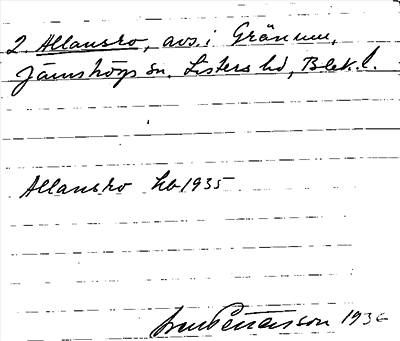 2. Allansro, avs. i Gränum,
Jämshögs sn. Listers hd, Blek. l.
Allansro hb 1935
Pettersson 1936